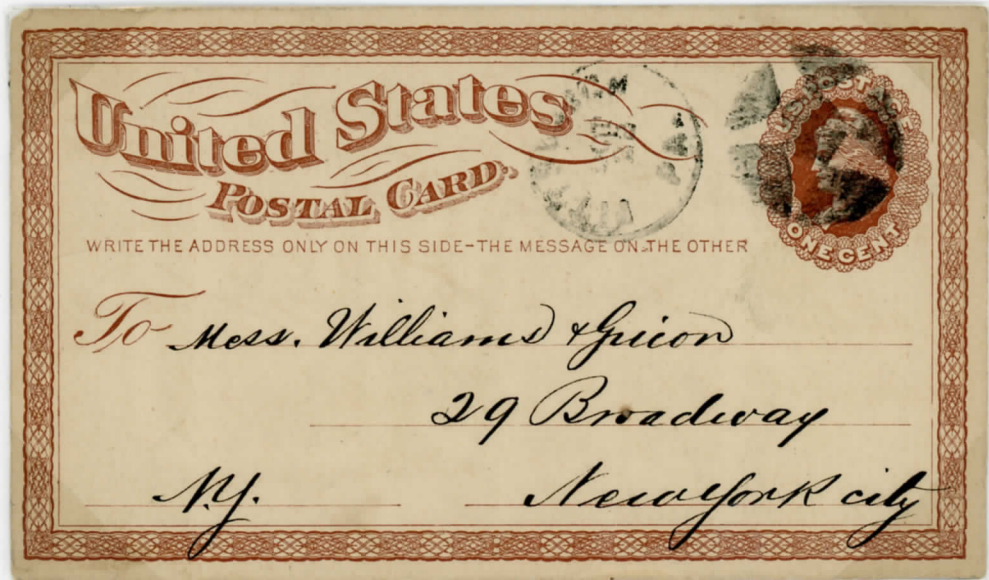 United States
POSTAL CARD.
U.S. POSTAGE
ONE CENT
WRITE THE ADDRESS ONLY ON THIS SIDE-THE MESSAGE ON THE OTHER
To Mess. Williams & Guion
29 Broadway
N.Y. New York city